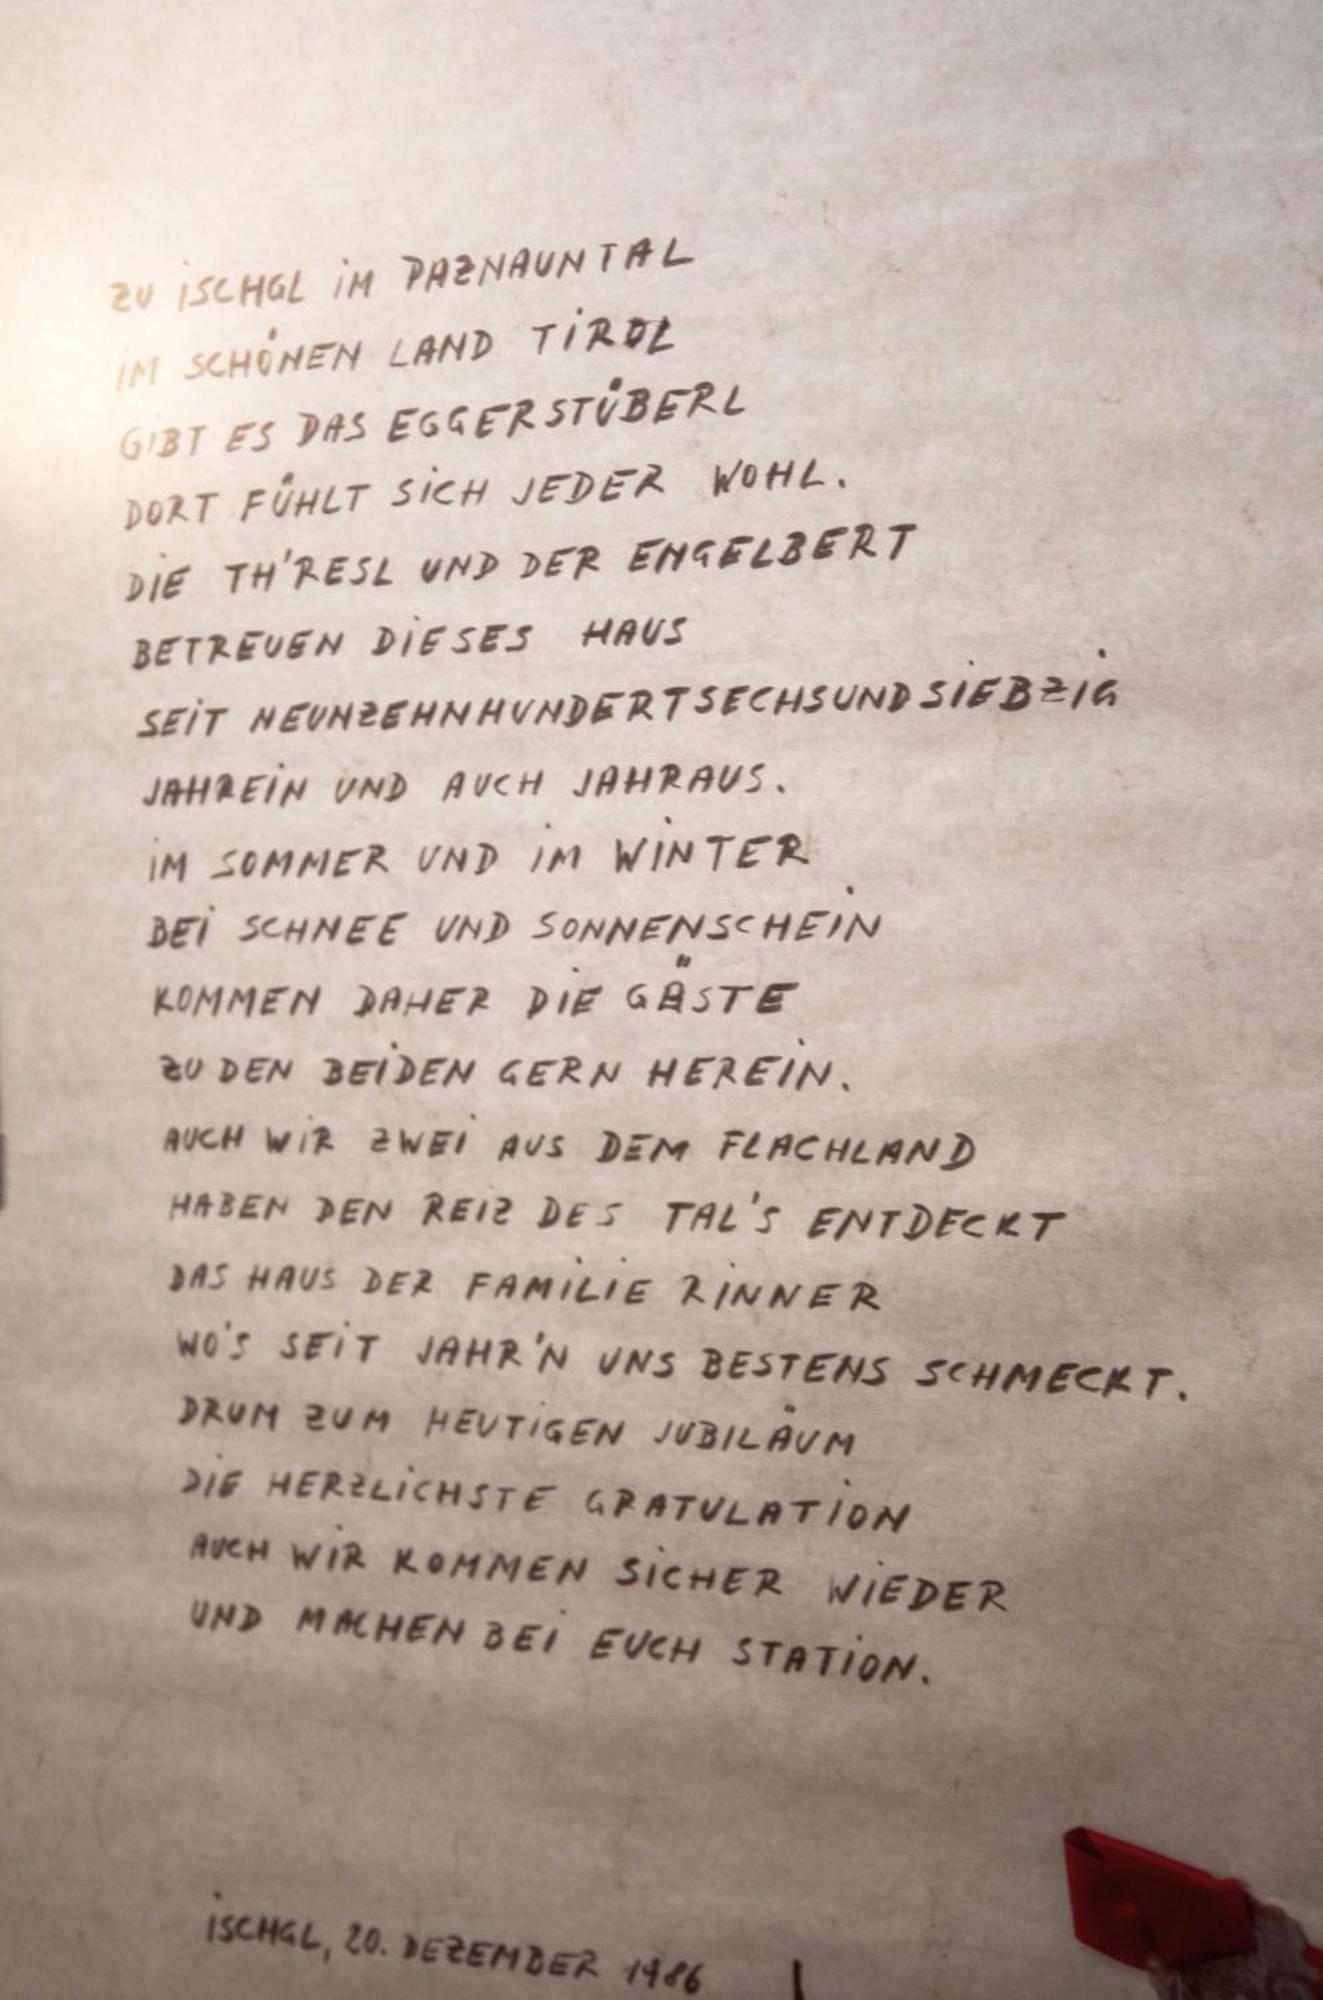 ZU ISCHGL IM PAZNAUNTAL
IM SCHÖNEN LAND TIROL
GIBT ES DAS EGGERSTÜBERL
DORT FÜHLT SICH JEDER WOHL.
DIE TH'RESL UND DER ENGELBERT
BETREUEN DIESES HAUS
SEIT NEUNZEHNHUNDERTSECHSUNDSIEBZIG
JAHREIN UND AUCH JAHRAUS.
IM SOMMER UND IM WINTER
BEI SCHNEE UND SONNENSCHEIN
KOMMEN DAHER DIE GÄSTE
ZU DEN BEIDEN GERN HEREIN.
AUCH WIR ZWEI AUS DEM FLACHLAND
HABEN DEN REIZ DES TAL'S ENTDECKT
DAS HAUS DER FAMILIE RINNER
WO'S SEIT JAHR'N UNS BESTENS SCHMECKT.
DRUM ZUM HEUTIGEN JUBILÄUM
DIE HERZLICHSTE GRATULATION
AUCH WIR KOMMEN SICHER WIEDER
UND MACHEN BEI EUCH STATION.
ISCHGL, 20. DEZEMBER 1986